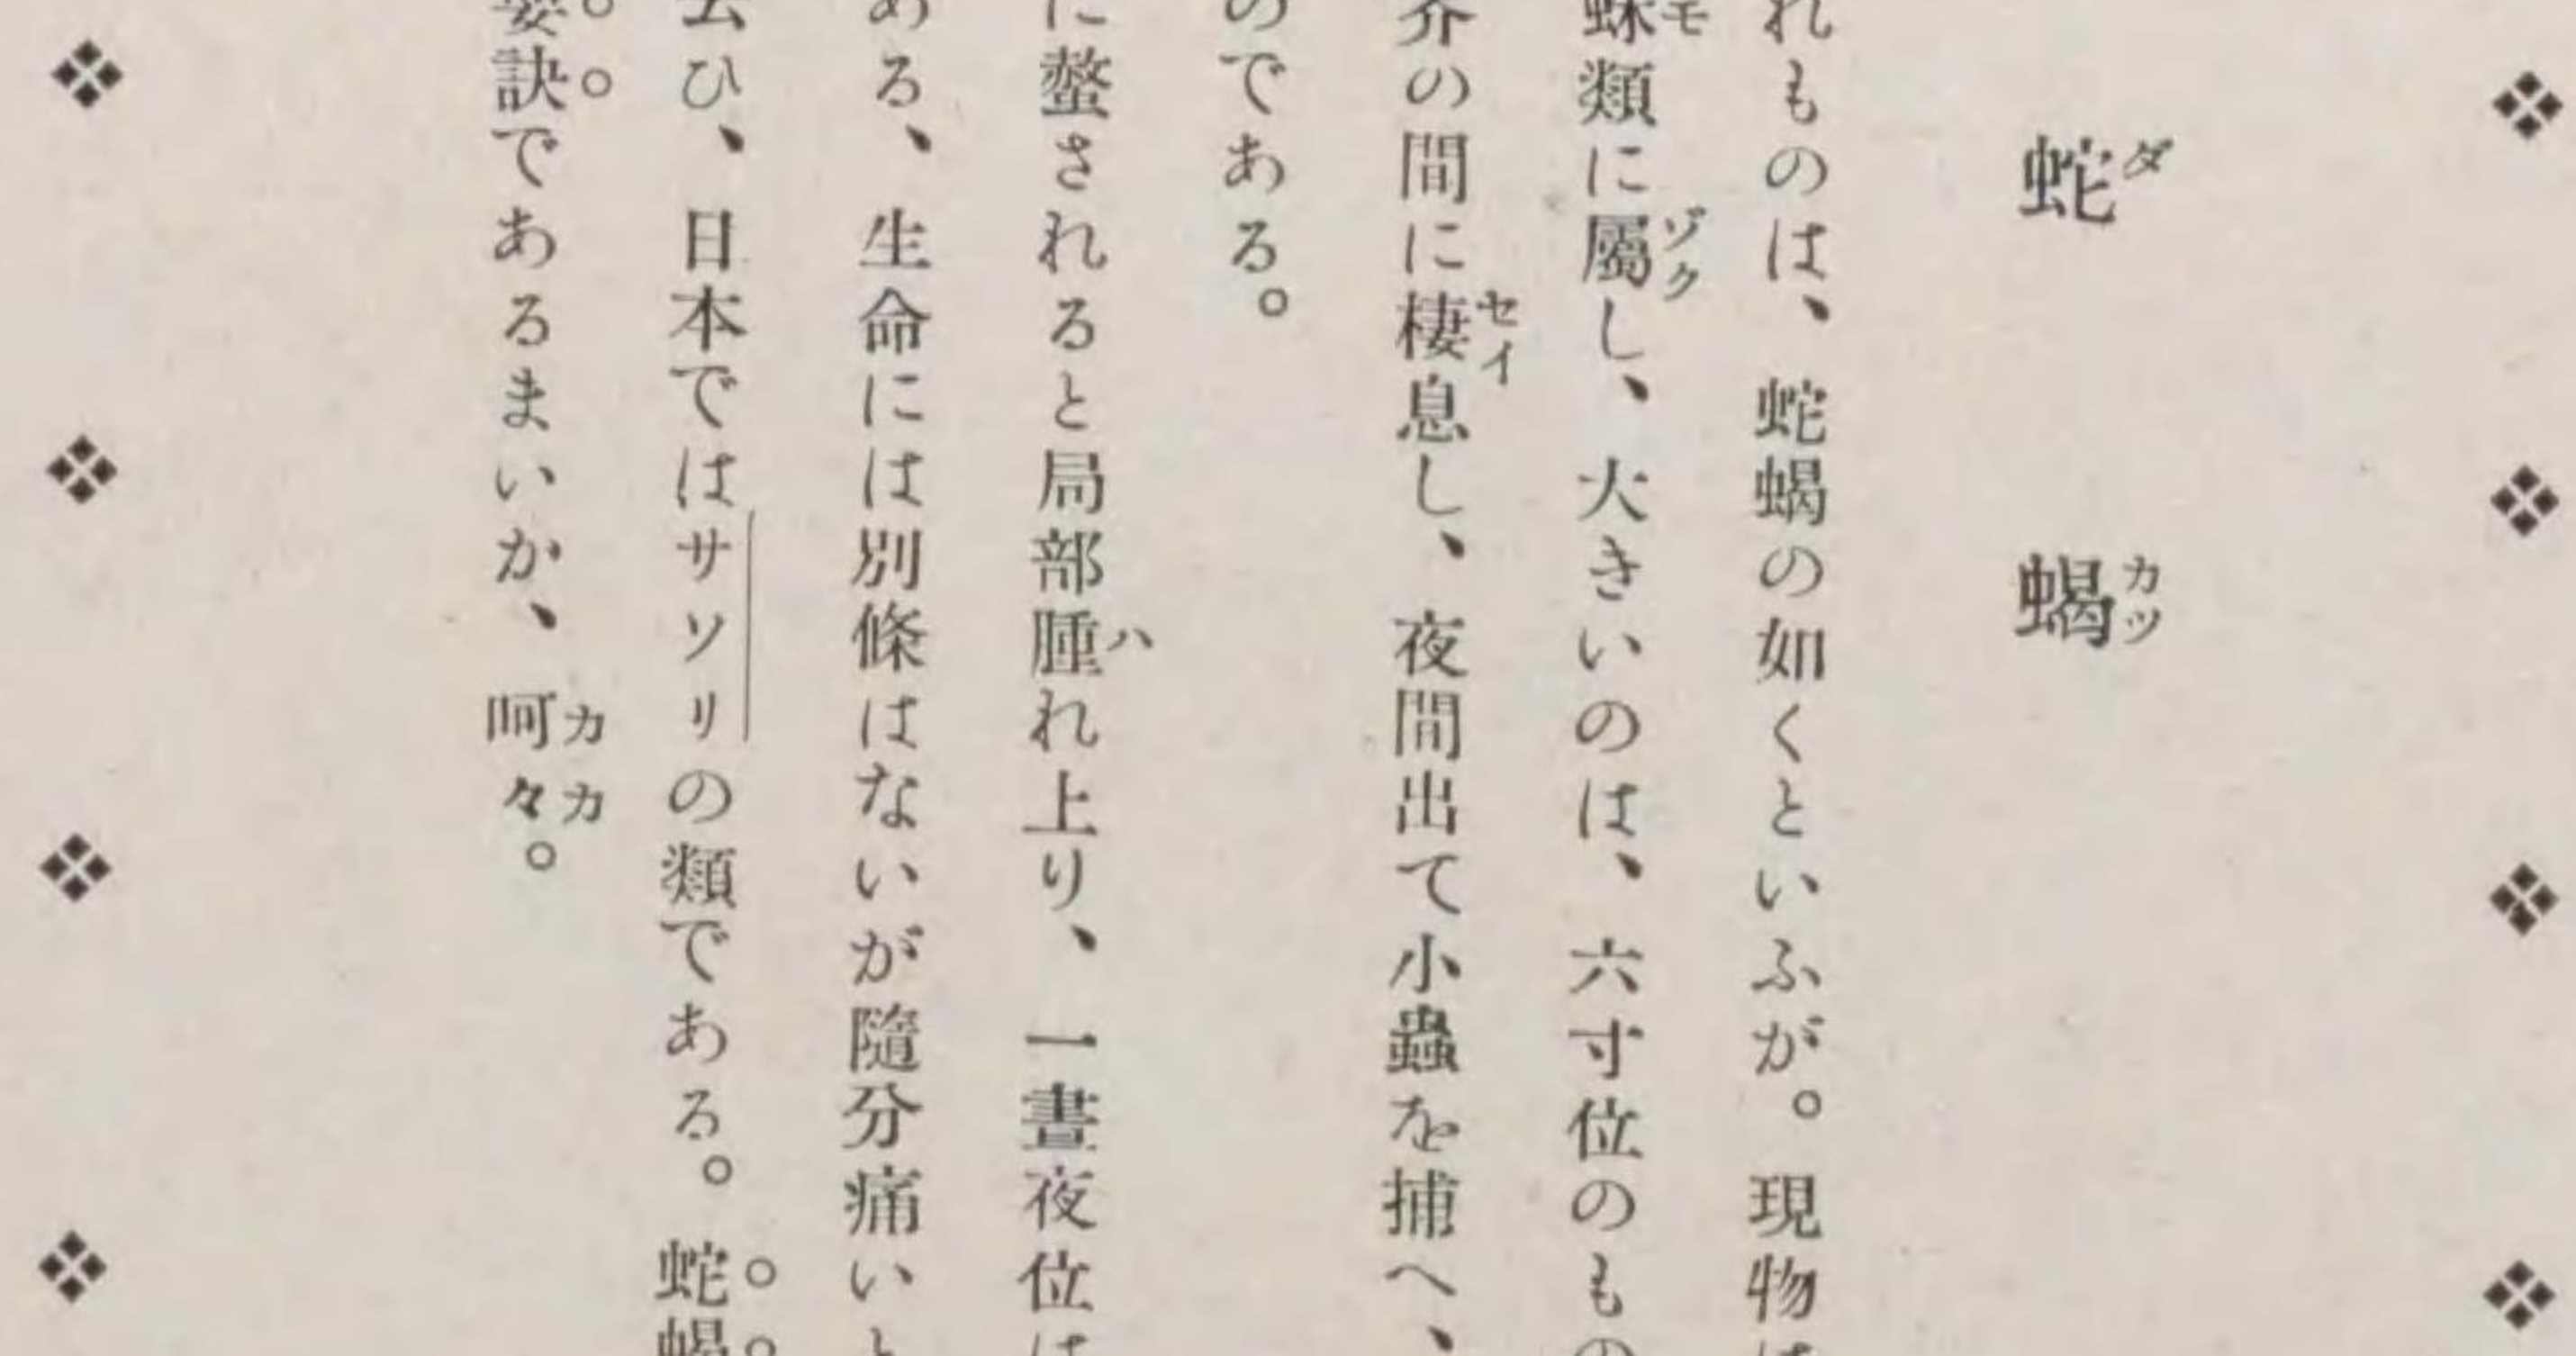 蛇蝎
れものは、蛇蝎の如くといふが。現物は
蛛類に屬し、大きいのは、六寸位のもの
芥の間に棲息し、夜間出て小蟲を捕へ、
のである。
に螫されると局部腫れ上り、一晝夜位は
ある、生命には別條はないが隨分痛いと
云ひ、日本ではサソリの類である。蛇蝎
訣であるまいか、呵々。